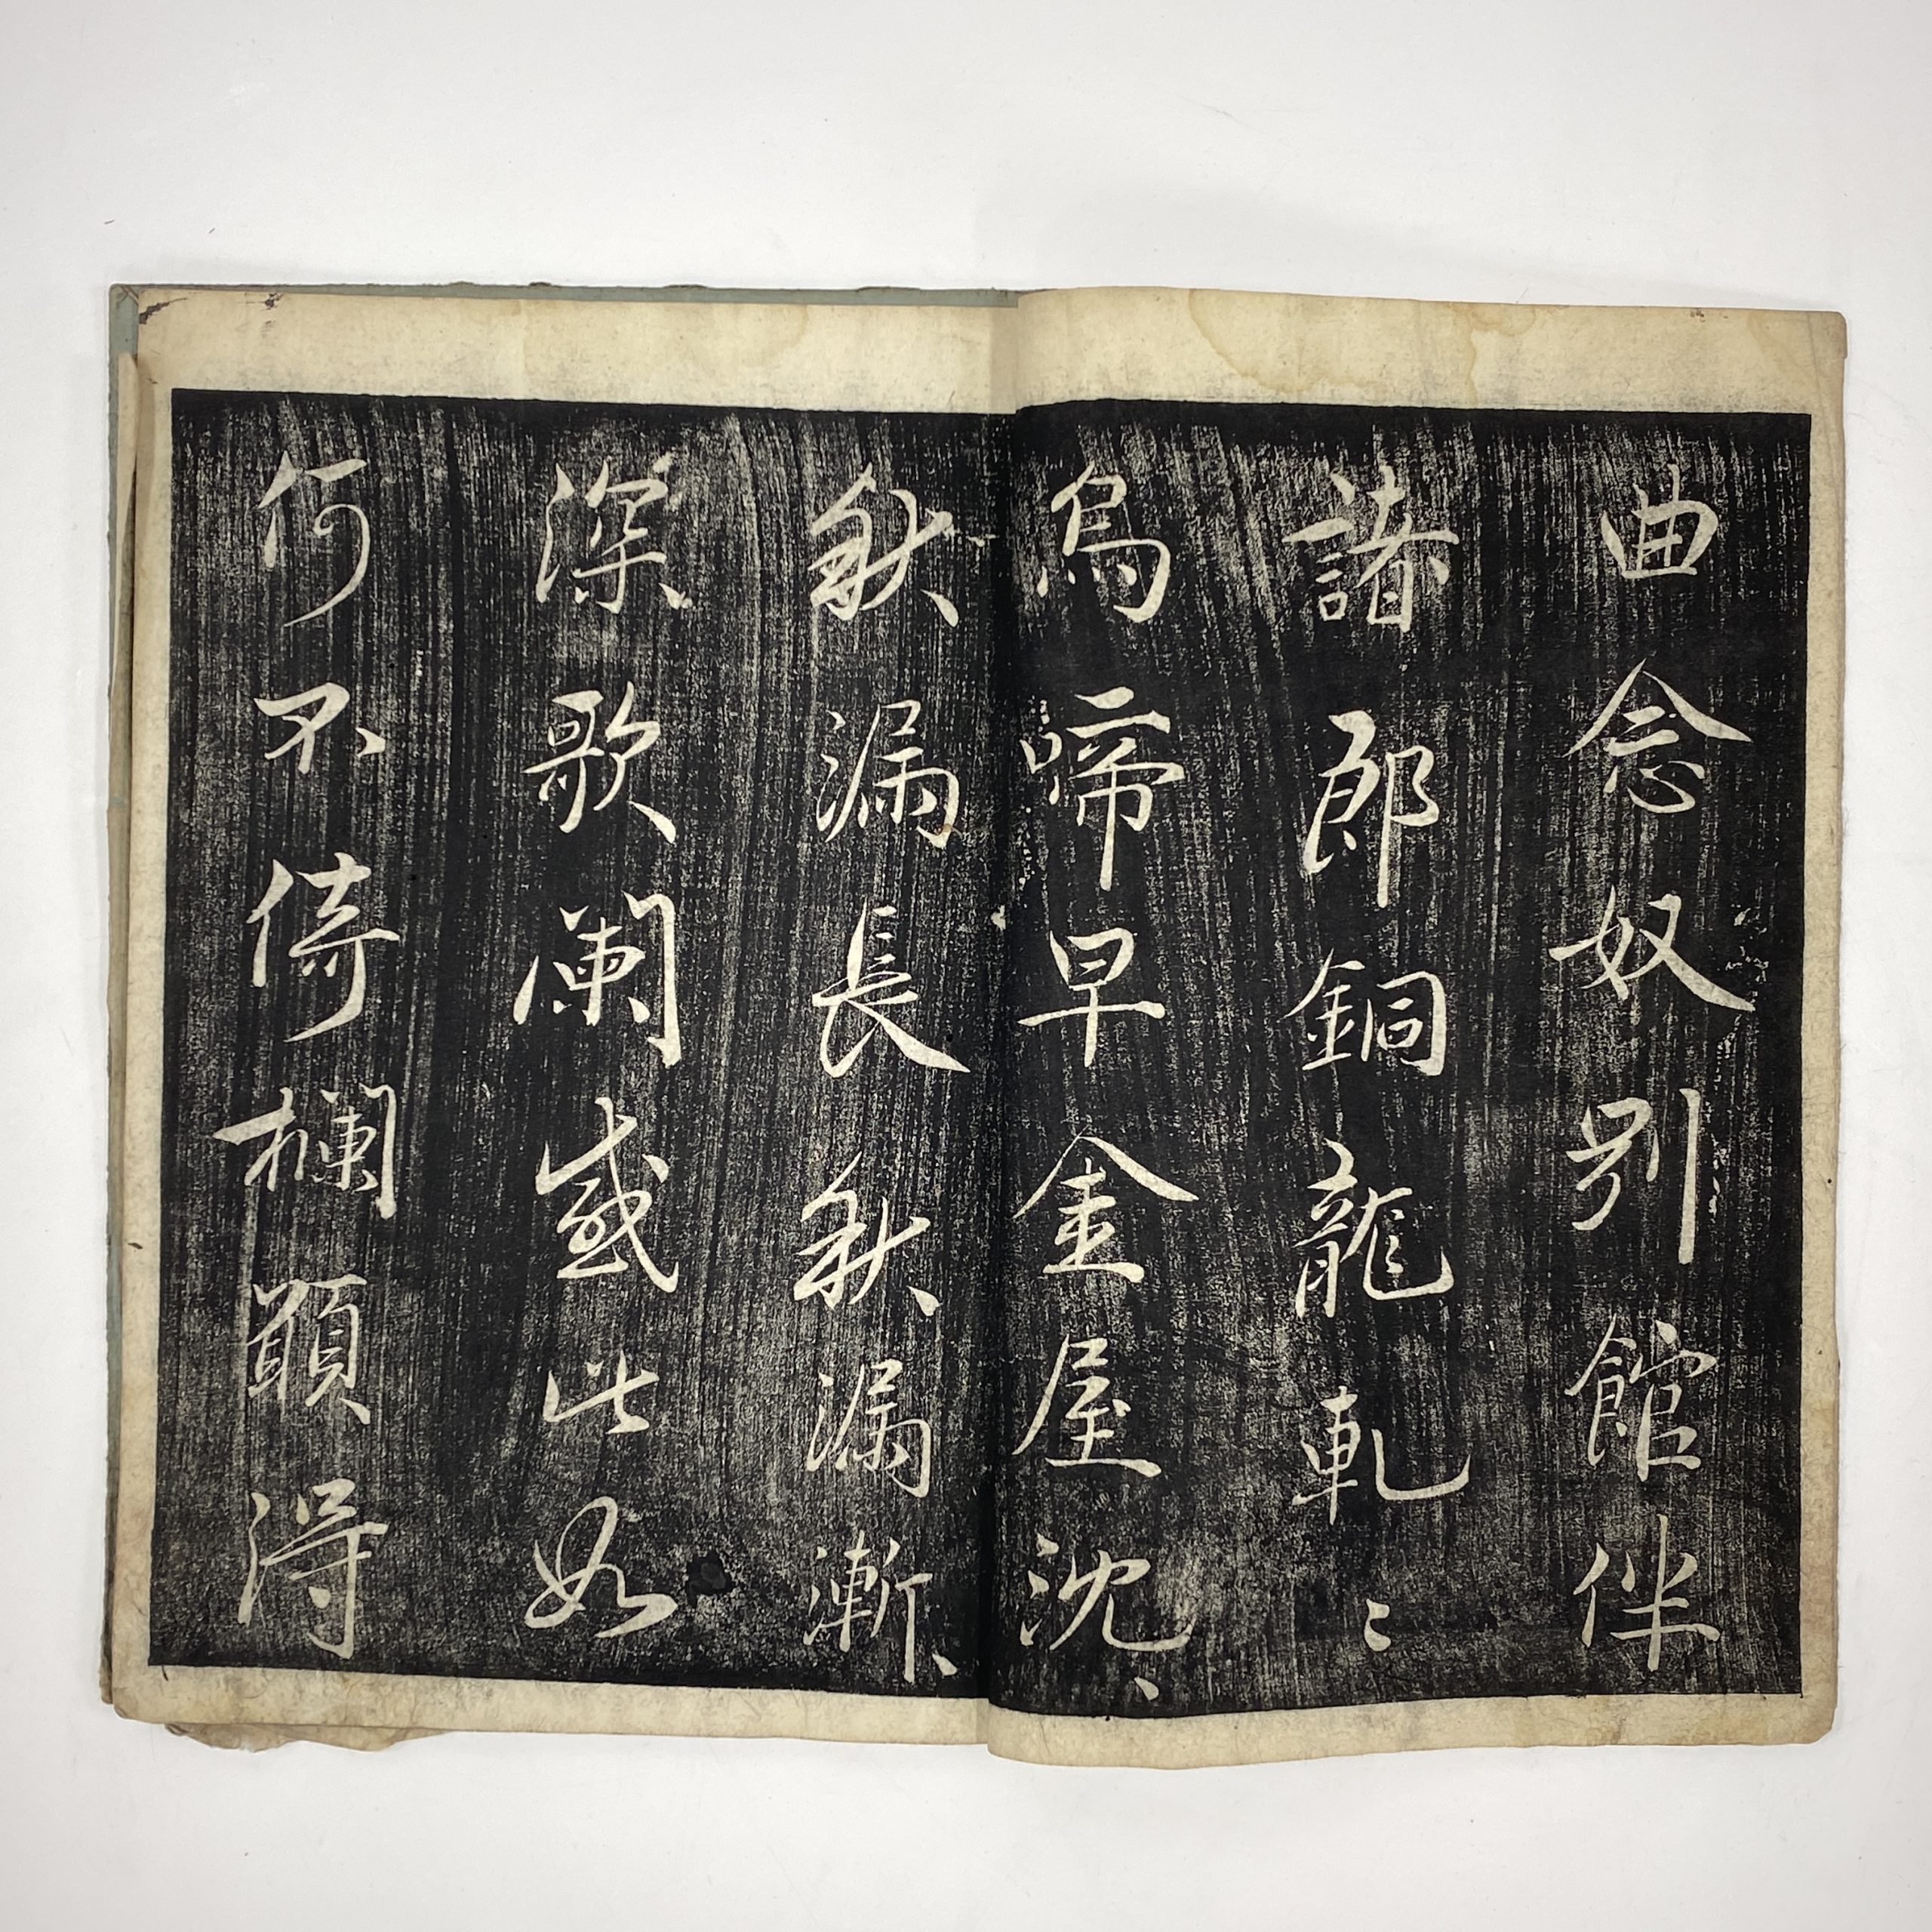 曲念奴別館伴
諸郎銅龍軋〻
烏啼早金屋沈、
秋漏長秋漏漸、
深歌闌感此如
何不倚欄願得